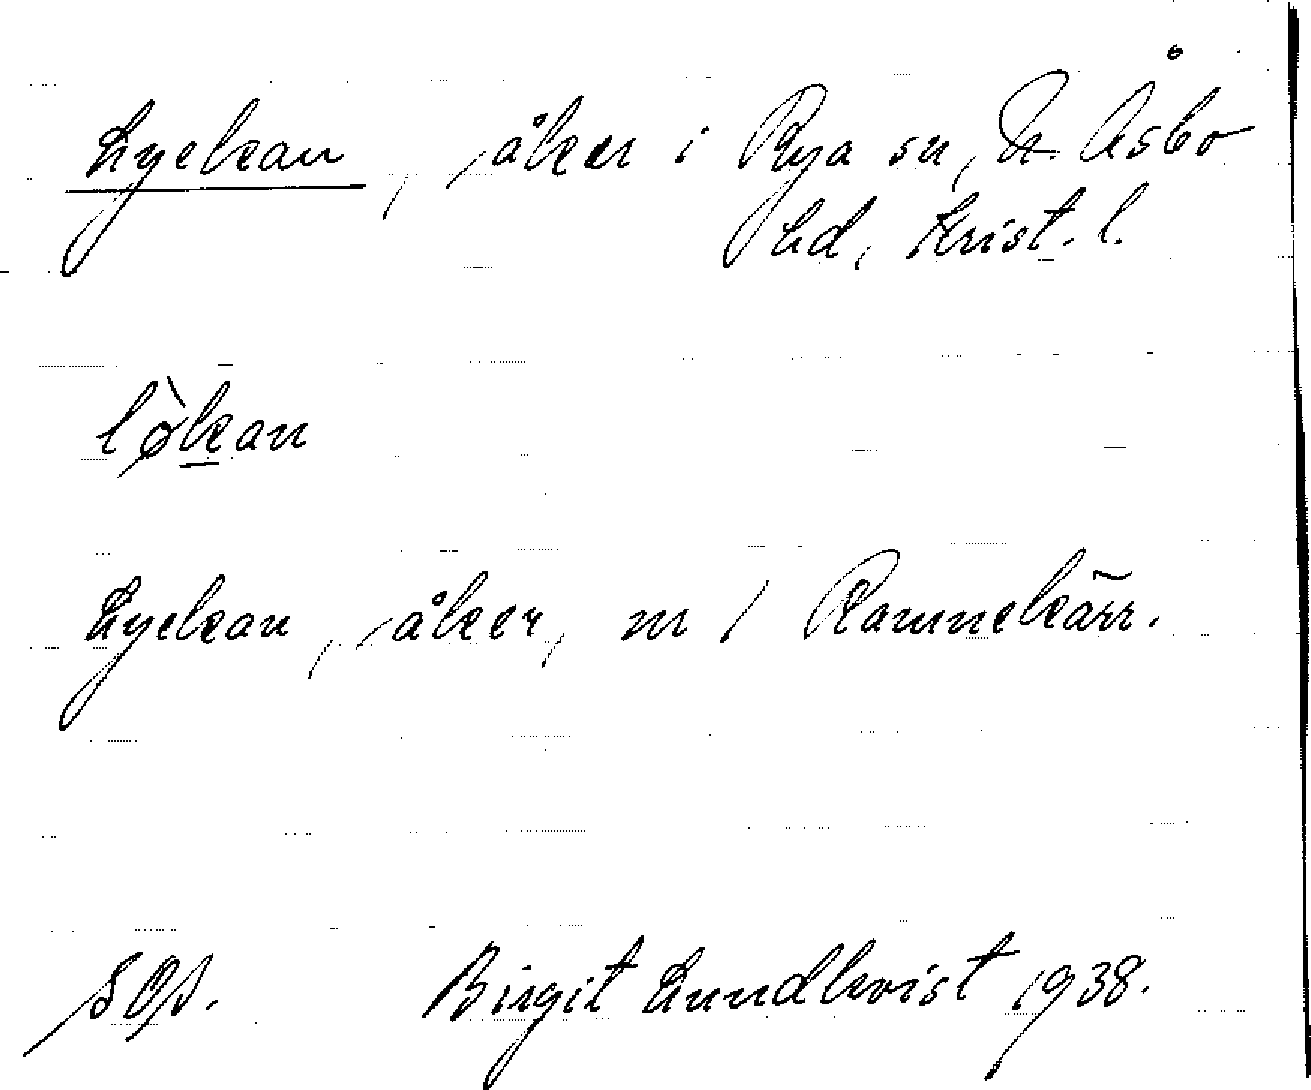 Lyckan, åker i Rya sn, N. Åsbo
hd, Krist. l.
lø̀kan
Lyckan, åker, m / Ramnekärr.
Birgit Lundkvist 1938.